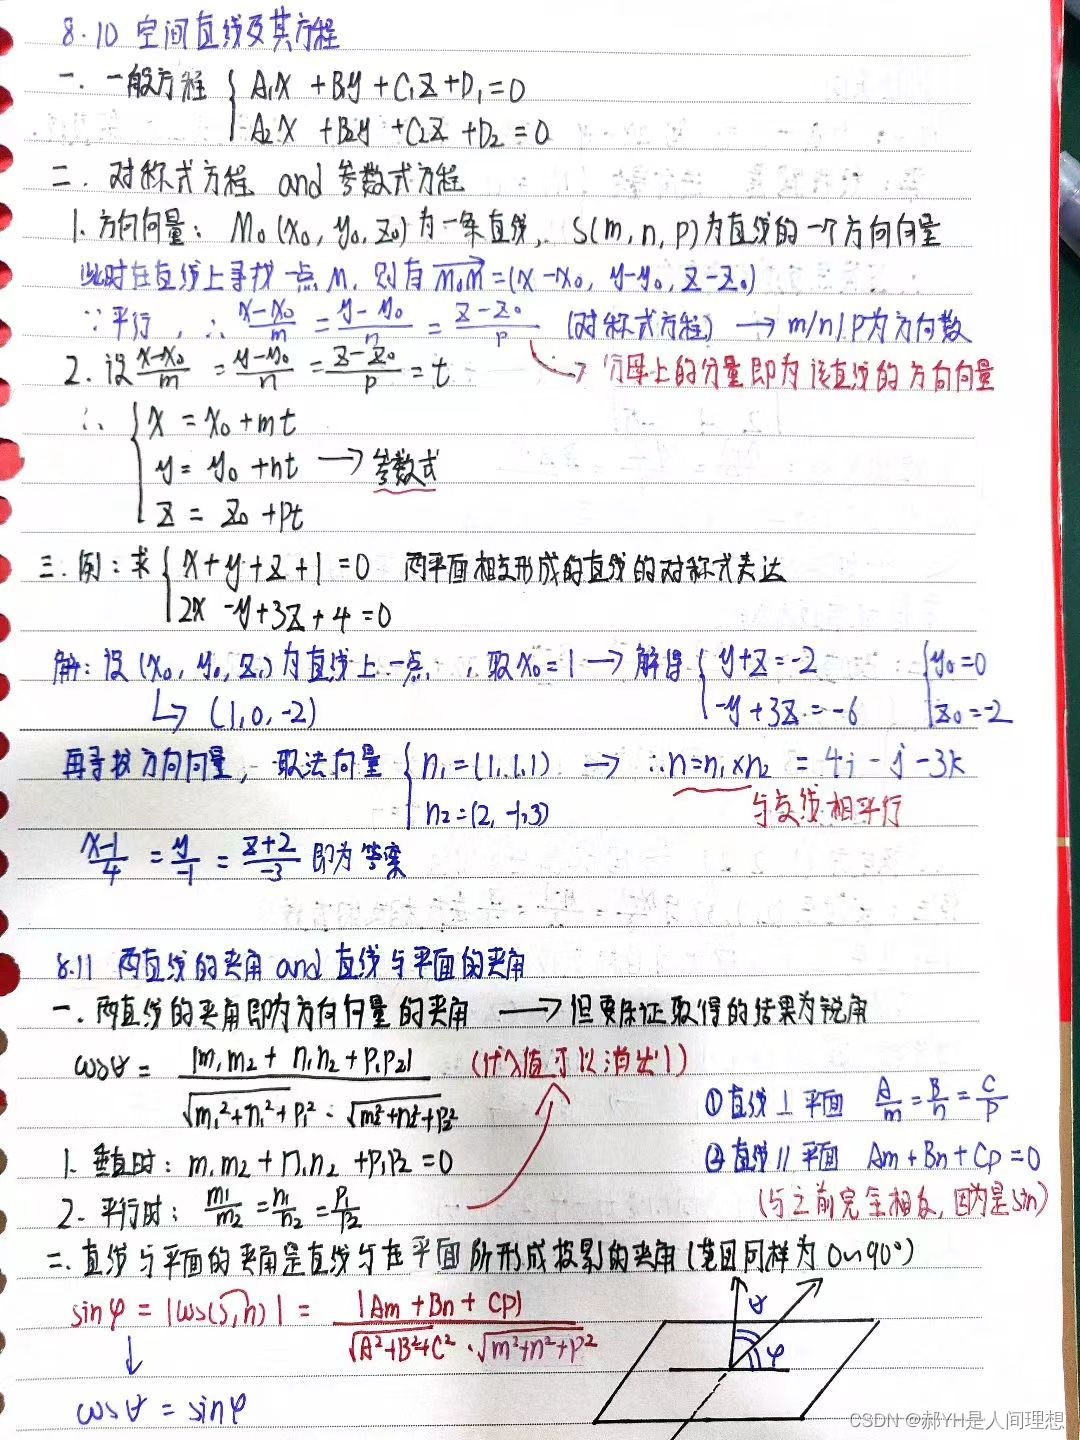 8.10 空间直线及其方程
一. 一般方程 { A₁x + B₁y + C₁z + D₁ = 0
A₂x + B₂y + C₂z + D₂ = 0
二. 对称式方程 and 参数式方程
1. 方向向量: M₀(x₀, y₀, z₀)为一条直线, S(m, n, p)为直线的一个方向向量
此时在直线上寻找一点M, 则有 M₀M = (x-x₀, y-y₀, z-z₀)
∵平行, ∴ (x-x₀)/m = (y-y₀)/n = (z-z₀)/p (对称式方程) → m/n/p为方向数
→ 分母上的分量即为该直线的方向向量
2. 设 (x-x₀)/m = (y-y₀)/n = (z-z₀)/p = t
∴ { x = x₀ + mt
y = y₀ + nt → 参数式
z = z₀ + pt
三. 例: 求 { x + y + z + 1 = 0 两平面相交形成的直线的对称式表达
2x - y + 3z + 4 = 0
解: 设(x₀, y₀, z₀)为直线上一点, 取x₀ = 1 → 解得 { y + z = -2 { y₀ = 0
↳ (1, 0, -2) -y + 3z = -6 z₀ = -2
再寻找方向向量, 取法向量 { n₁ = (1, 1, 1) → ∴ n = n₁×n₂ = 4i - j - 3k
n₂ = (2, -1, 3) 与交线相平行
(x-1)/4 = y/-1 = (z+2)/-3 即为答案
8.11 两直线的夹角 and 直线与平面的夹角
一. 两直线的夹角即为方向向量的夹角 → 但要保证取得的结果为锐角
cosθ = |m₁m₂ + n₁n₂ + p₁p₂| / √(m₁²+n₁²+p₁²) · √(m₂²+n₂²+p₂²) (代入值可以消出1)
① 直线⊥平面 A/m = B/n = C/p
1. 垂直时: m₁m₂ + n₁n₂ + p₁p₂ = 0
② 直线∥平面 Am + Bn + Cp = 0
2. 平行时: m₁/m₂ = n₁/n₂ = p₁/p₂
(与之前完全相反, 因为是sin)
二. 直线与平面的夹角是直线与在平面所形成投影的夹角(范围同样为0~90°)
sinφ = |cos(S, n)| = |Am + Bn + Cp| / √(A²+B²+C²) · √(m²+n²+p²)
θ
φ
↓
cosθ = sinφ
CSDN @郝YH是人间理想